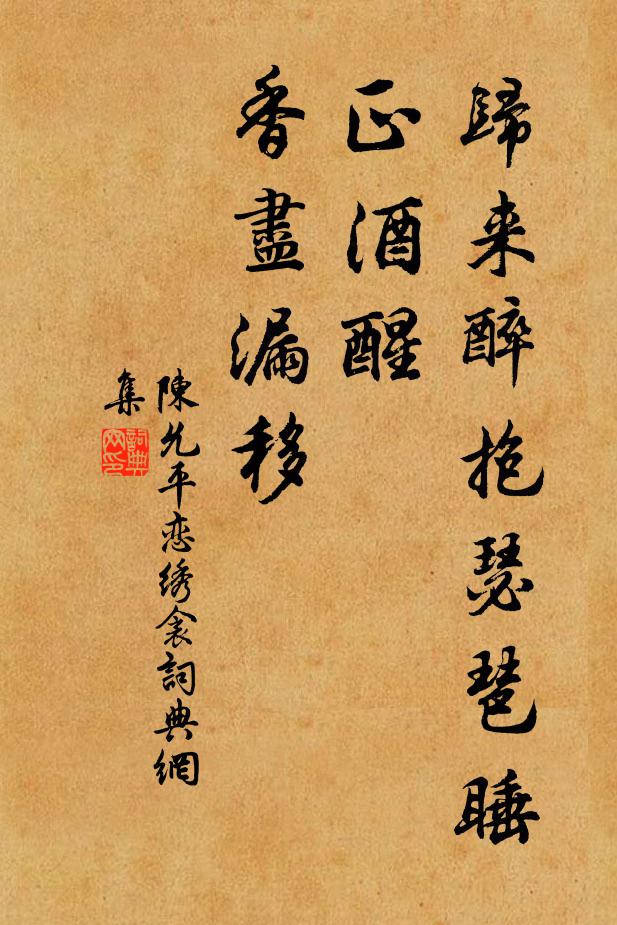 歸来醉抱瑟琶睡
正酒醒
香盡漏移
陳允平恋绣衾詞典網
集
詞典网印